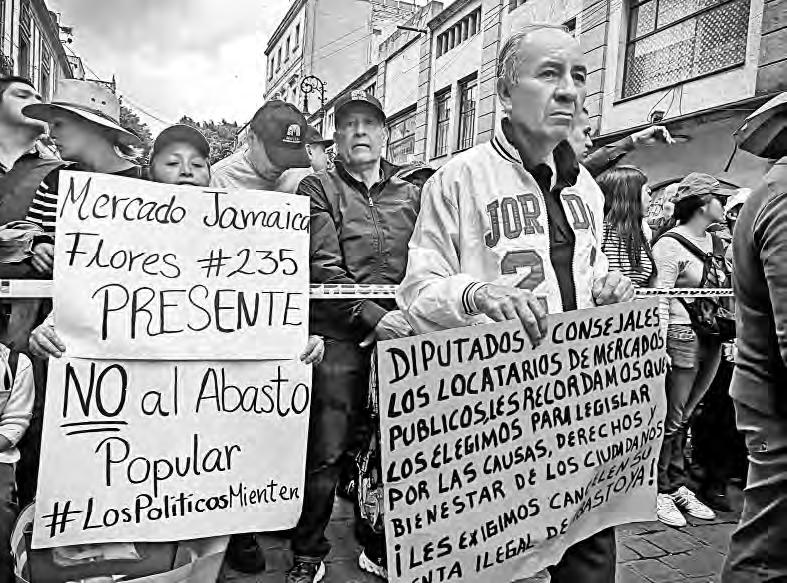 Mercado Jamaica
Flores #235
PRESENTE
NO al Abasto
Popular
#LosPoliticosMienten
JORD
2
DIPUTADOS Y CONSEJALES
LOS LOCATARIOS DE MERCADOS
PUBLICOS, LES RECORDAMOS QUE
LOS ELEGIMOS PARA LEGISLAR
POR LAS CAUSAS, DERECHOS Y
BIENESTAR DE LOS CIUDADANOS
¡LES EXIGIMOS CANCELEN SU
ENTA ILEGAL DE ABASTO YA!